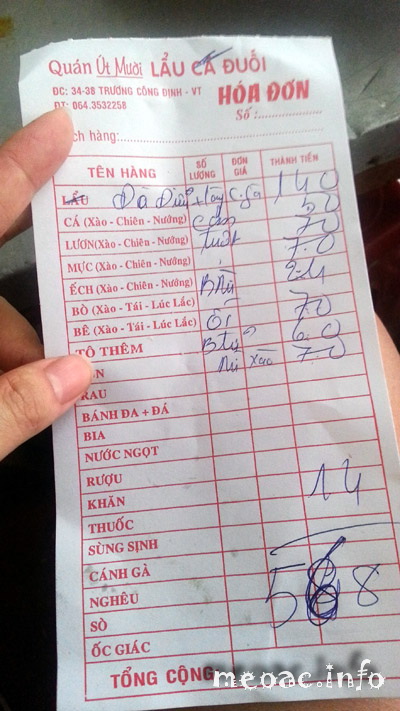 Quán Út Mười LẨU CÁ ĐUỐI
ĐC: 34-38 TRƯƠNG CÔNG ĐỊNH - VT
ĐT: 064.3532258
HÓA ĐƠN
Số:
ch hàng:
TÊN HÀNG SỐ LƯỢNG ĐƠN GIÁ THÀNH TIỀN
LẨU Đà Điểu 140
CÁ (Xào - Chiên - Nướng) 50
LƯƠN (Xào - Chiên - Nướng) 70
MỰC (Xào - Chiên - Nướng) 70
ẾCH (Xào - Chiên - Nướng) 24
BÒ (Xào - Tái - Lúc Lắc) 70
BÊ (Xào - Tái - Lúc Lắc) 60
TÔ THÊM 70
ÚN
RAU
BÁNH ĐA + ĐÁ
BIA
NƯỚC NGỌT
RƯỢU
KHĂN 14
THUỐC
SÙNG SINH
CÁNH GÀ
NGHÊU 568
SÒ
ỐC GIÁC
TỔNG CỘNG
meoac.info